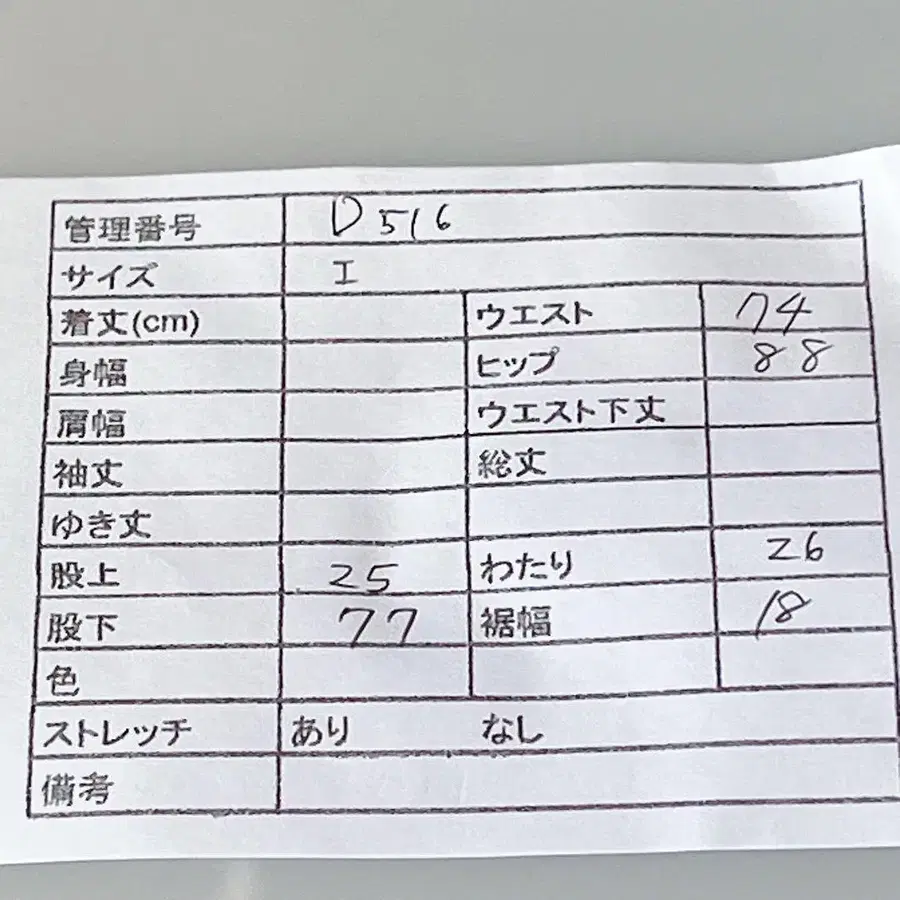 管理番号 D516
サイズ I
着丈(cm) ウエスト 74
身幅 ヒップ 88
肩幅 ウエスト下丈
袖丈 総丈
ゆき丈
股上 25 わたり 26
股下 77 裾幅 18
色
ストレッチ あり なし
備考